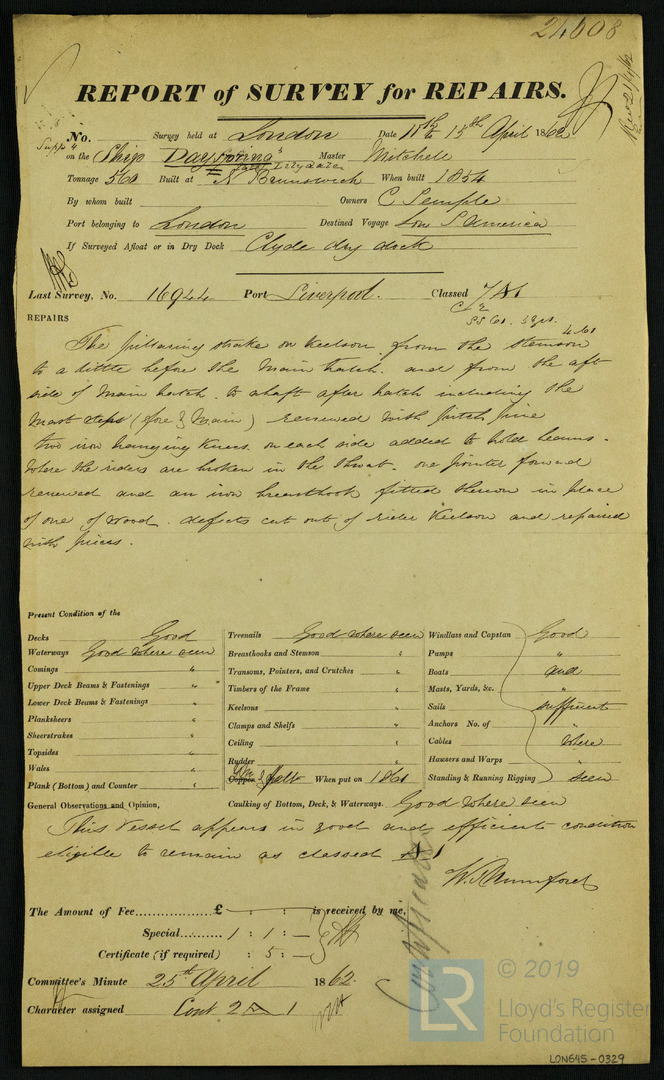 24608
REPORT of SURVEY for REPAIRS.
No. Survey held at London Date 11th & 15th April 1862
on the Ship Master Mitchell
Tonnage 560 Built at N Brunswick When built 1854
By whom built Owners C Semple
Port belonging to London Destined Voyage Lon S America
If Surveyed Afloat or in Dry Dock Clyde dry dock
Last Survey, No. 16944 Port Liverpool. Classed 7A1
SS 61. 3 yrs. 4.61
REPAIRS
The pillaring strake on keelson from the stemson
to a little before the main hatch. and from the aft
side of main hatch. to abaft after hatch including the
mast steps (fore & main) renewed with pitch pine
two iron hanging knees. on each side added to hold beams.
where the riders are broken in the throat. one pointer forward
renewed and an iron breasthook fitted thereon in place
of one of wood. defects cut out of rider keelson and repaired
with pieces.
Present Condition of the
Decks Good
Waterways Good where seen
Comings "
Upper Deck Beams & Fastenings " "
Lower Deck Beams & Fastenings "
Planksheers "
Sheerstrakes "
Topsides "
Wales "
Plank (Bottom) and Counter "
Treenails Good where seen
Breasthooks and Stemson "
Transoms, Pointers, and Crutches "
Timbers of the Frame "
Keelsons "
Clamps and Shelfs "
Ceiling "
Rudder "
Copper & Felt When put on 1861
Windlass and Capstan Good
Pumps "
Boats and
Masts, Yards, &c. "
Sails sufficient
Anchors No. of "
Cables where
Hawsers and Warps "
Standing & Running Rigging seen
General Observations and Opinion, Caulking of Bottom, Deck, & Waterways. Good where seen
This vessel appears in good and efficient condition
eligible to remain as classed A1
W. Mumford
The Amount of Fee £ — : — : — is received by me,
Special 1 : 1 : —
Certificate (if required) : 5 : —
Certificate
Committee's Minute 25th April 1862.
Character assigned Cont 2 A 1
LR © 2019
Lloyd's Register
Foundation
LON645-0329